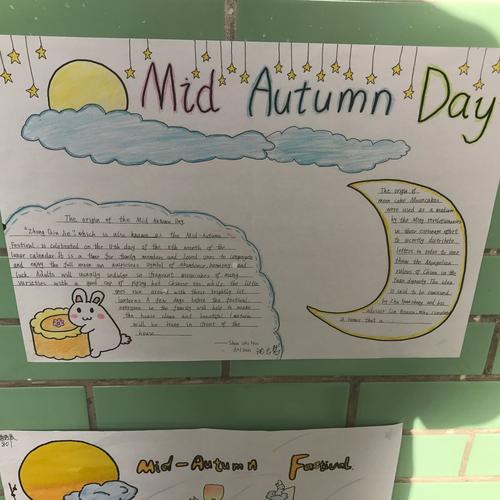 Mid Autumn Day
The origin of the Mid Autumn Day
"Zhong Qiu Jie", which is also known as the Mid-Autumn
Festival, is celebrated on the 15th day of the 8th month of the
lunar calendar. It is a time for family members and loved ones to congregate
and enjoy the full moon an auspicious symbol of abundance, harmony and
luck. Adults will usually indulge in fragrant mooncakes of many
varieties with a good cup of piping hot Chinese tea, while the little
ones run around with their brightly lit
lanterns. A few days before the festival,
everyone in the family will help to make
the house clean and beautiful. Lanterns
will be hung in front of the
house.
The origin of
moon cake Mooncakes
were used as a medium
by the Ming revolutionaries
in their
effort
to secretly distribute
letters in order to
throw the Mongolian
rulers of China in the
Yuan dynasty. The idea
is said to be conceived
by Zhu Yuanzhang and his
advisor Liu
Mid-Autumn Festival